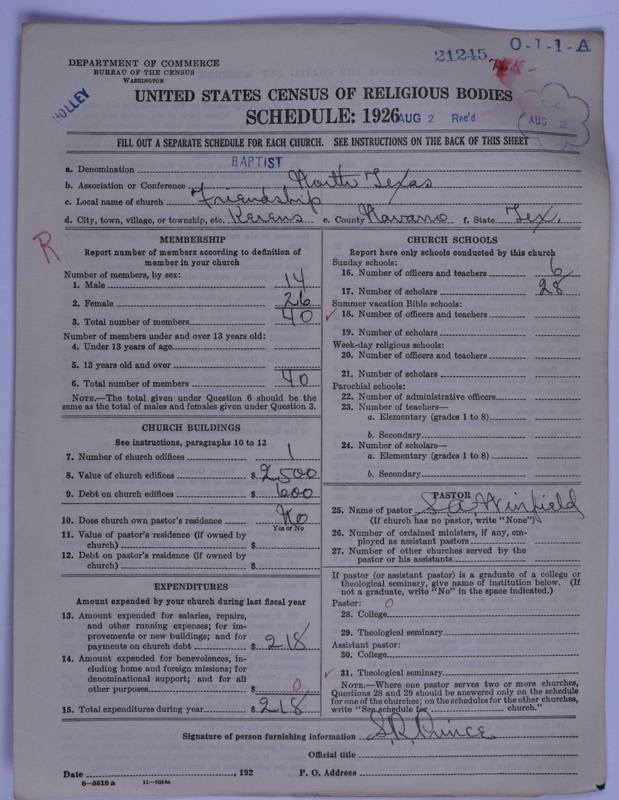 DEPARTMENT OF COMMERCE
BUREAU OF THE CENSUS
WASHINGTON
21245
0-1-1-A
HOLLEY
UNITED STATES CENSUS OF RELIGIOUS BODIES
SCHEDULE: 1926
AUG 2 Rec'd
AUG 2
FILL OUT A SEPARATE SCHEDULE FOR EACH CHURCH. SEE INSTRUCTIONS ON THE BACK OF THIS SHEET
a. Denomination BAPTIST
b. Association or Conference North Texas
c. Local name of church Friendship
d. City, town, village, or township, etc. Kerens e. County Navarro f. State Tex.
R
MEMBERSHIP
Report number of members according to definition of
member in your church
Number of members, by sex:
1. Male 14
2. Female 26
3. Total number of members 40
Number of members under and over 13 years old:
4. Under 13 years of age
5. 13 years old and over
6. Total number of members 40
NOTE.—The total given under Question 6 should be
same as the total of males and females given under Question 3.
CHURCH BUILDINGS
See instructions, paragraphs 10 to 12
7. Number of church edifices 1
8. Value of church edifices $ 2500
9. Debt on church edifices $ 600
10. Does church own pastor's residence No
Yes or No
11. Value of pastor's residence (if owned by
church) $
12. Debt on pastor's residence (if owned by
church) $
EXPENDITURES
Amount expended by your church during last fiscal year
13. Amount expended for salaries, repairs,
and other running expenses; for im-
provements or new buildings; and for
payments on church debt $ 218
14. Amount expended for benevolences, in-
cluding home and foreign missions; for
denominational support; and for all
other purposes $ 0
15. Total expenditures during year $ 218
CHURCH SCHOOLS
Report here only schools conducted by this church
Sunday schools:
16. Number of officers and teachers 6
17. Number of scholars 28
Summer vacation Bible schools:
18. Number of officers and teachers
19. Number of scholars
Week-day religious schools:
20. Number of officers and teachers
21. Number of scholars
Parochial schools:
22. Number of administrative officers
23. Number of teachers—
a. Elementary (grades 1 to 8)
b. Secondary
24. Number of scholars—
a. Elementary (grades 1 to 8)
b. Secondary
PASTOR
25. Name of pastor S A Winfield
(If church has no pastor, write "None")
26. Number of ordained ministers, if any, em-
ployed as assistant pastors
27. Number of other churches served by the
pastor or his assistants
If pastor (or assistant pastor) is a graduate of a college or
theological seminary, give name of institution below. (If
not a graduate, write "No" in the space indicated.)
Pastor: 0
28. College
29. Theological seminary
Assistant pastor:
30. College
31. Theological seminary
NOTE.—Where one pastor serves two or more churches,
Questions 28 and 29 should be answered only on the schedule
for one of the churches; on the schedules for the other churches,
write "See schedule for church."
Signature of person furnishing information S. R. Prince
Official title
Date , 192 P. O. Address
6-5518 a 11-9024a